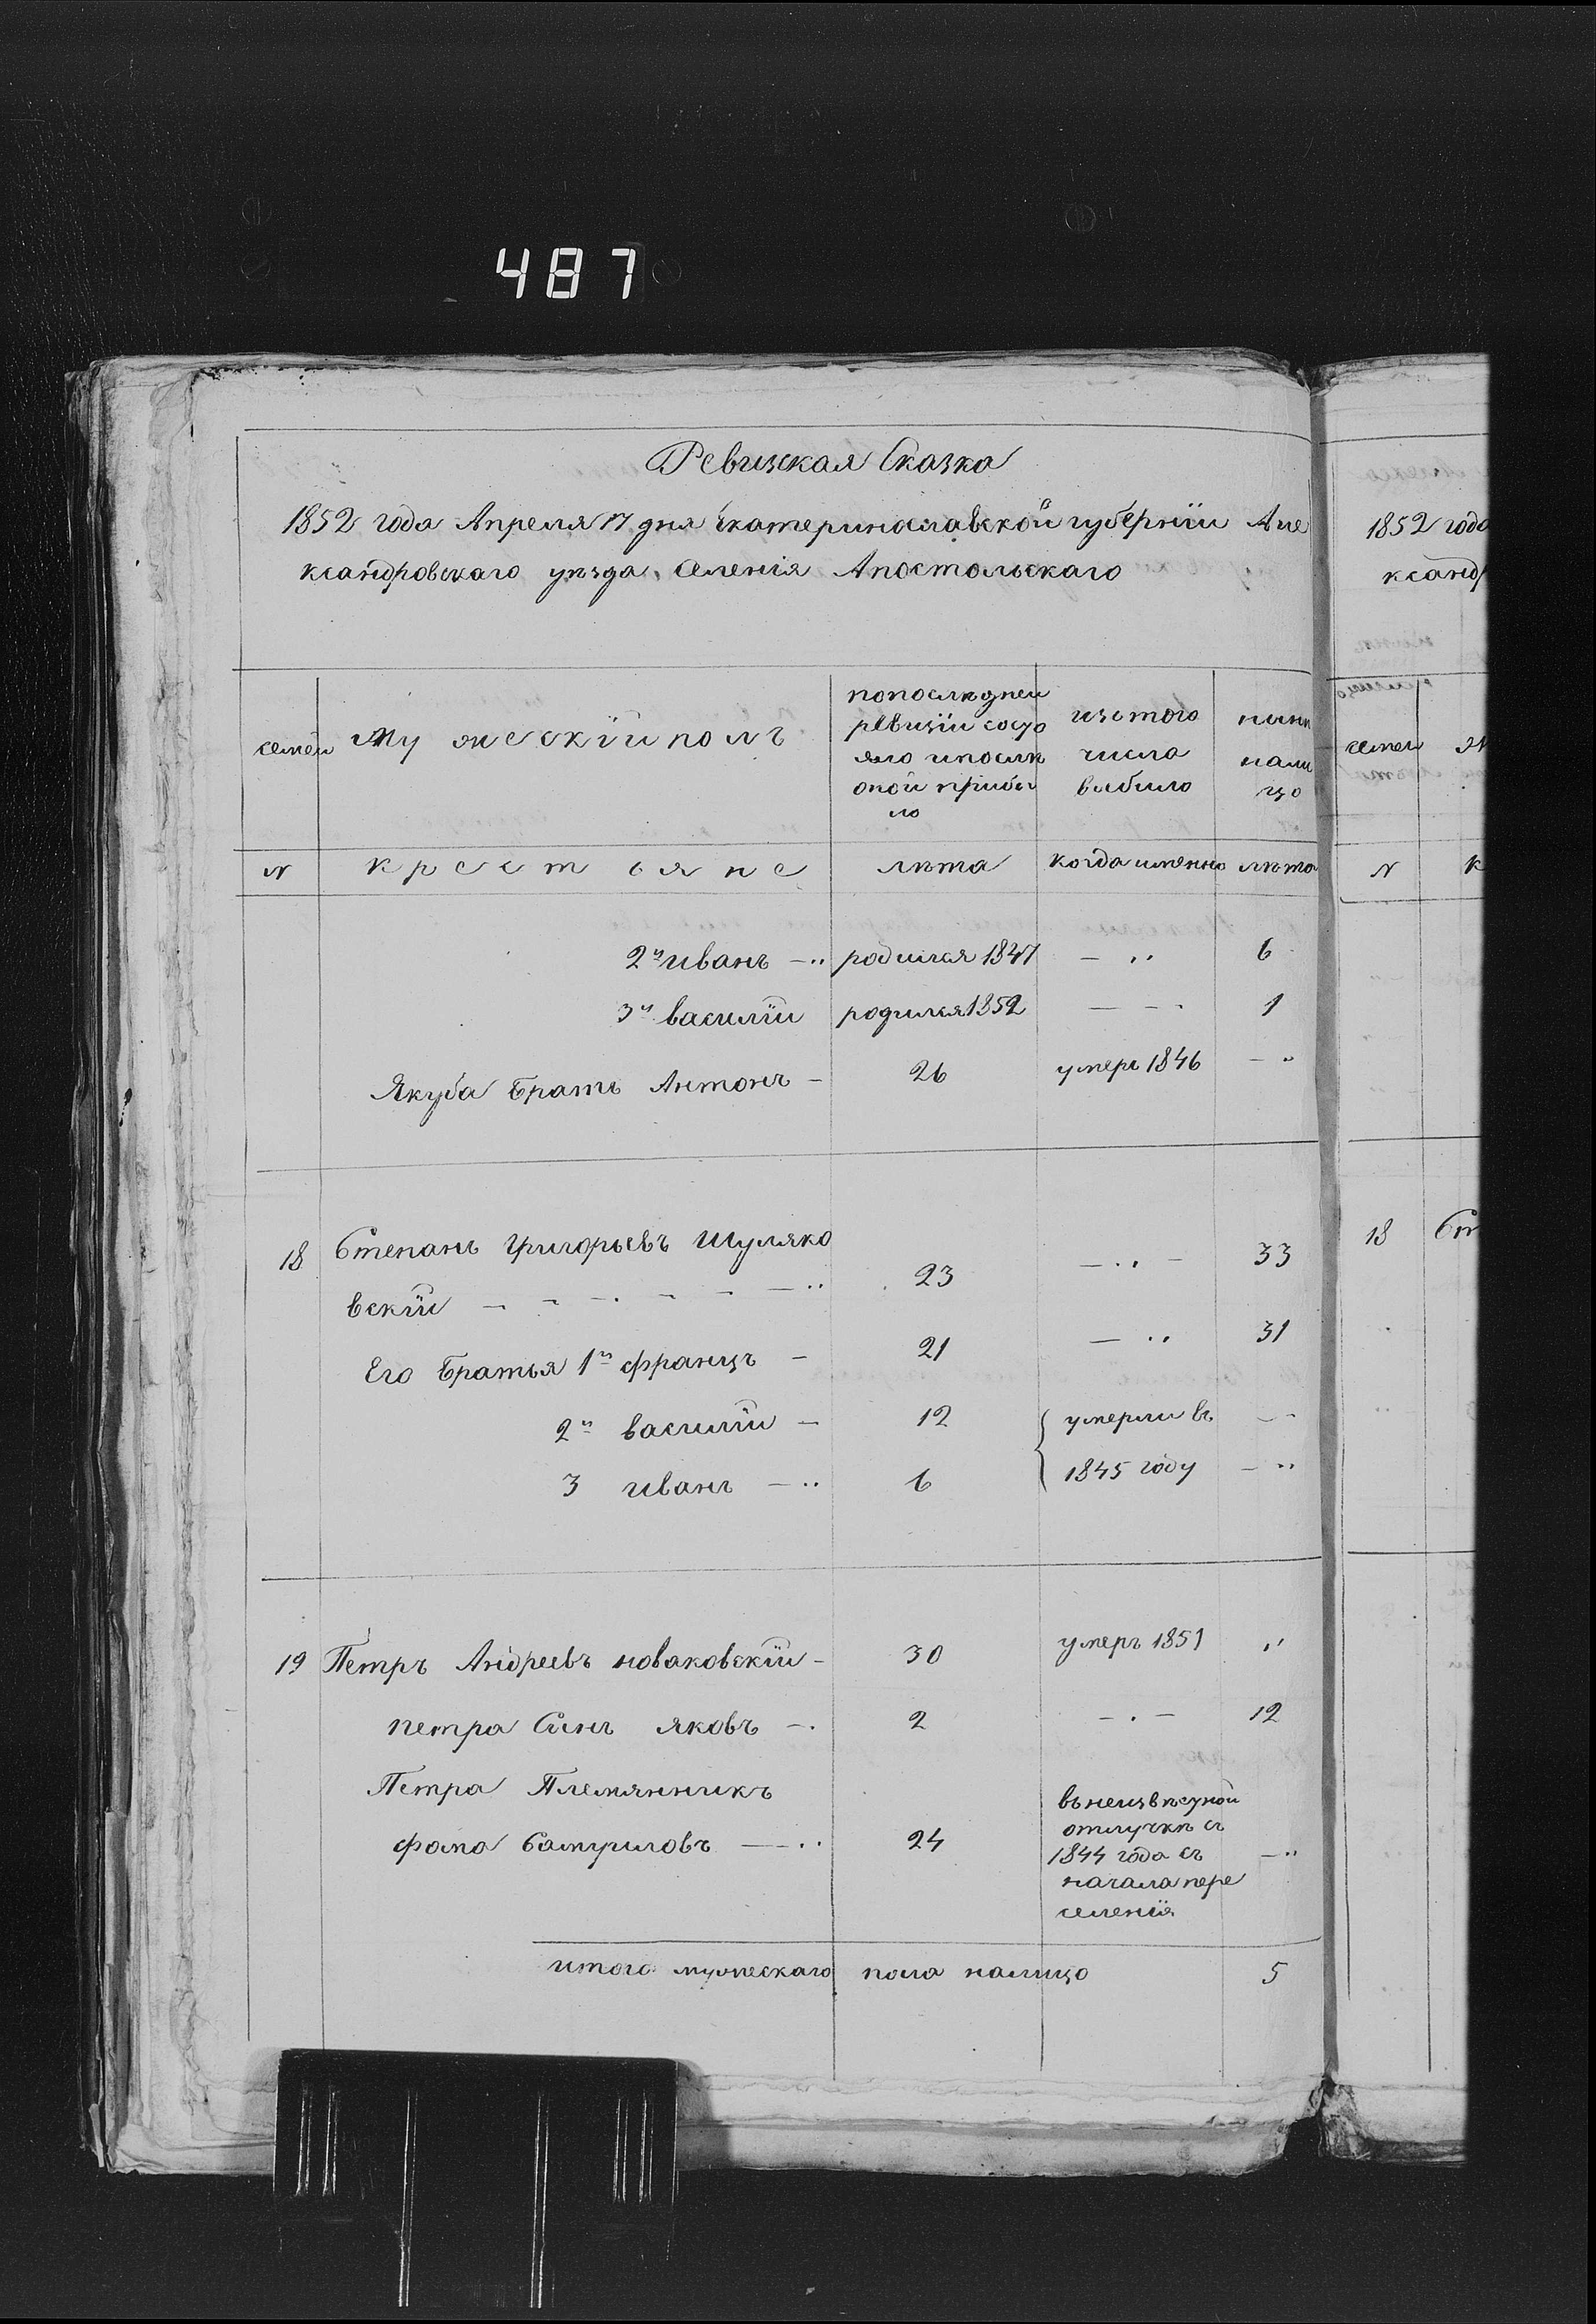 487
Ревизская Сказка
1852 года Апреля 17 дня Екатеринославской губернїи Але
ксандровскаго уѣзда. Селенія Апостольскаго
семьи
Мужескїй полъ
попослѣдней
ревизїи состо
яло ипослѣ
оной прибы
ло
изътого
числа
выбыло
нынѣ
нали
цо
N
крестьяне
лѣта
когда именно
лѣта
2й иванъ родился 1847 6
3й василїй родился 1852 1
Якуба Братъ Антонъ 26 умеръ 1846
18 Степанъ Григорьевъ Шуляко
вскїй 23 33
Его Братья 1й францъ 21 31
2й василїй 12 умерли въ
3 иванъ 6 1845 году
19 Петръ Андреевъ новаковскїй 30 умеръ 1851
петра Сынъ яковъ 2 12
Петра Племянникъ
фома 24
въ неизвѣсной
отлучкѣ съ
1844 года съ
начала пере
селенїя
итого мужескаго пола налицо 5
1852 года
ксанд
семьи
N К
18 Ст